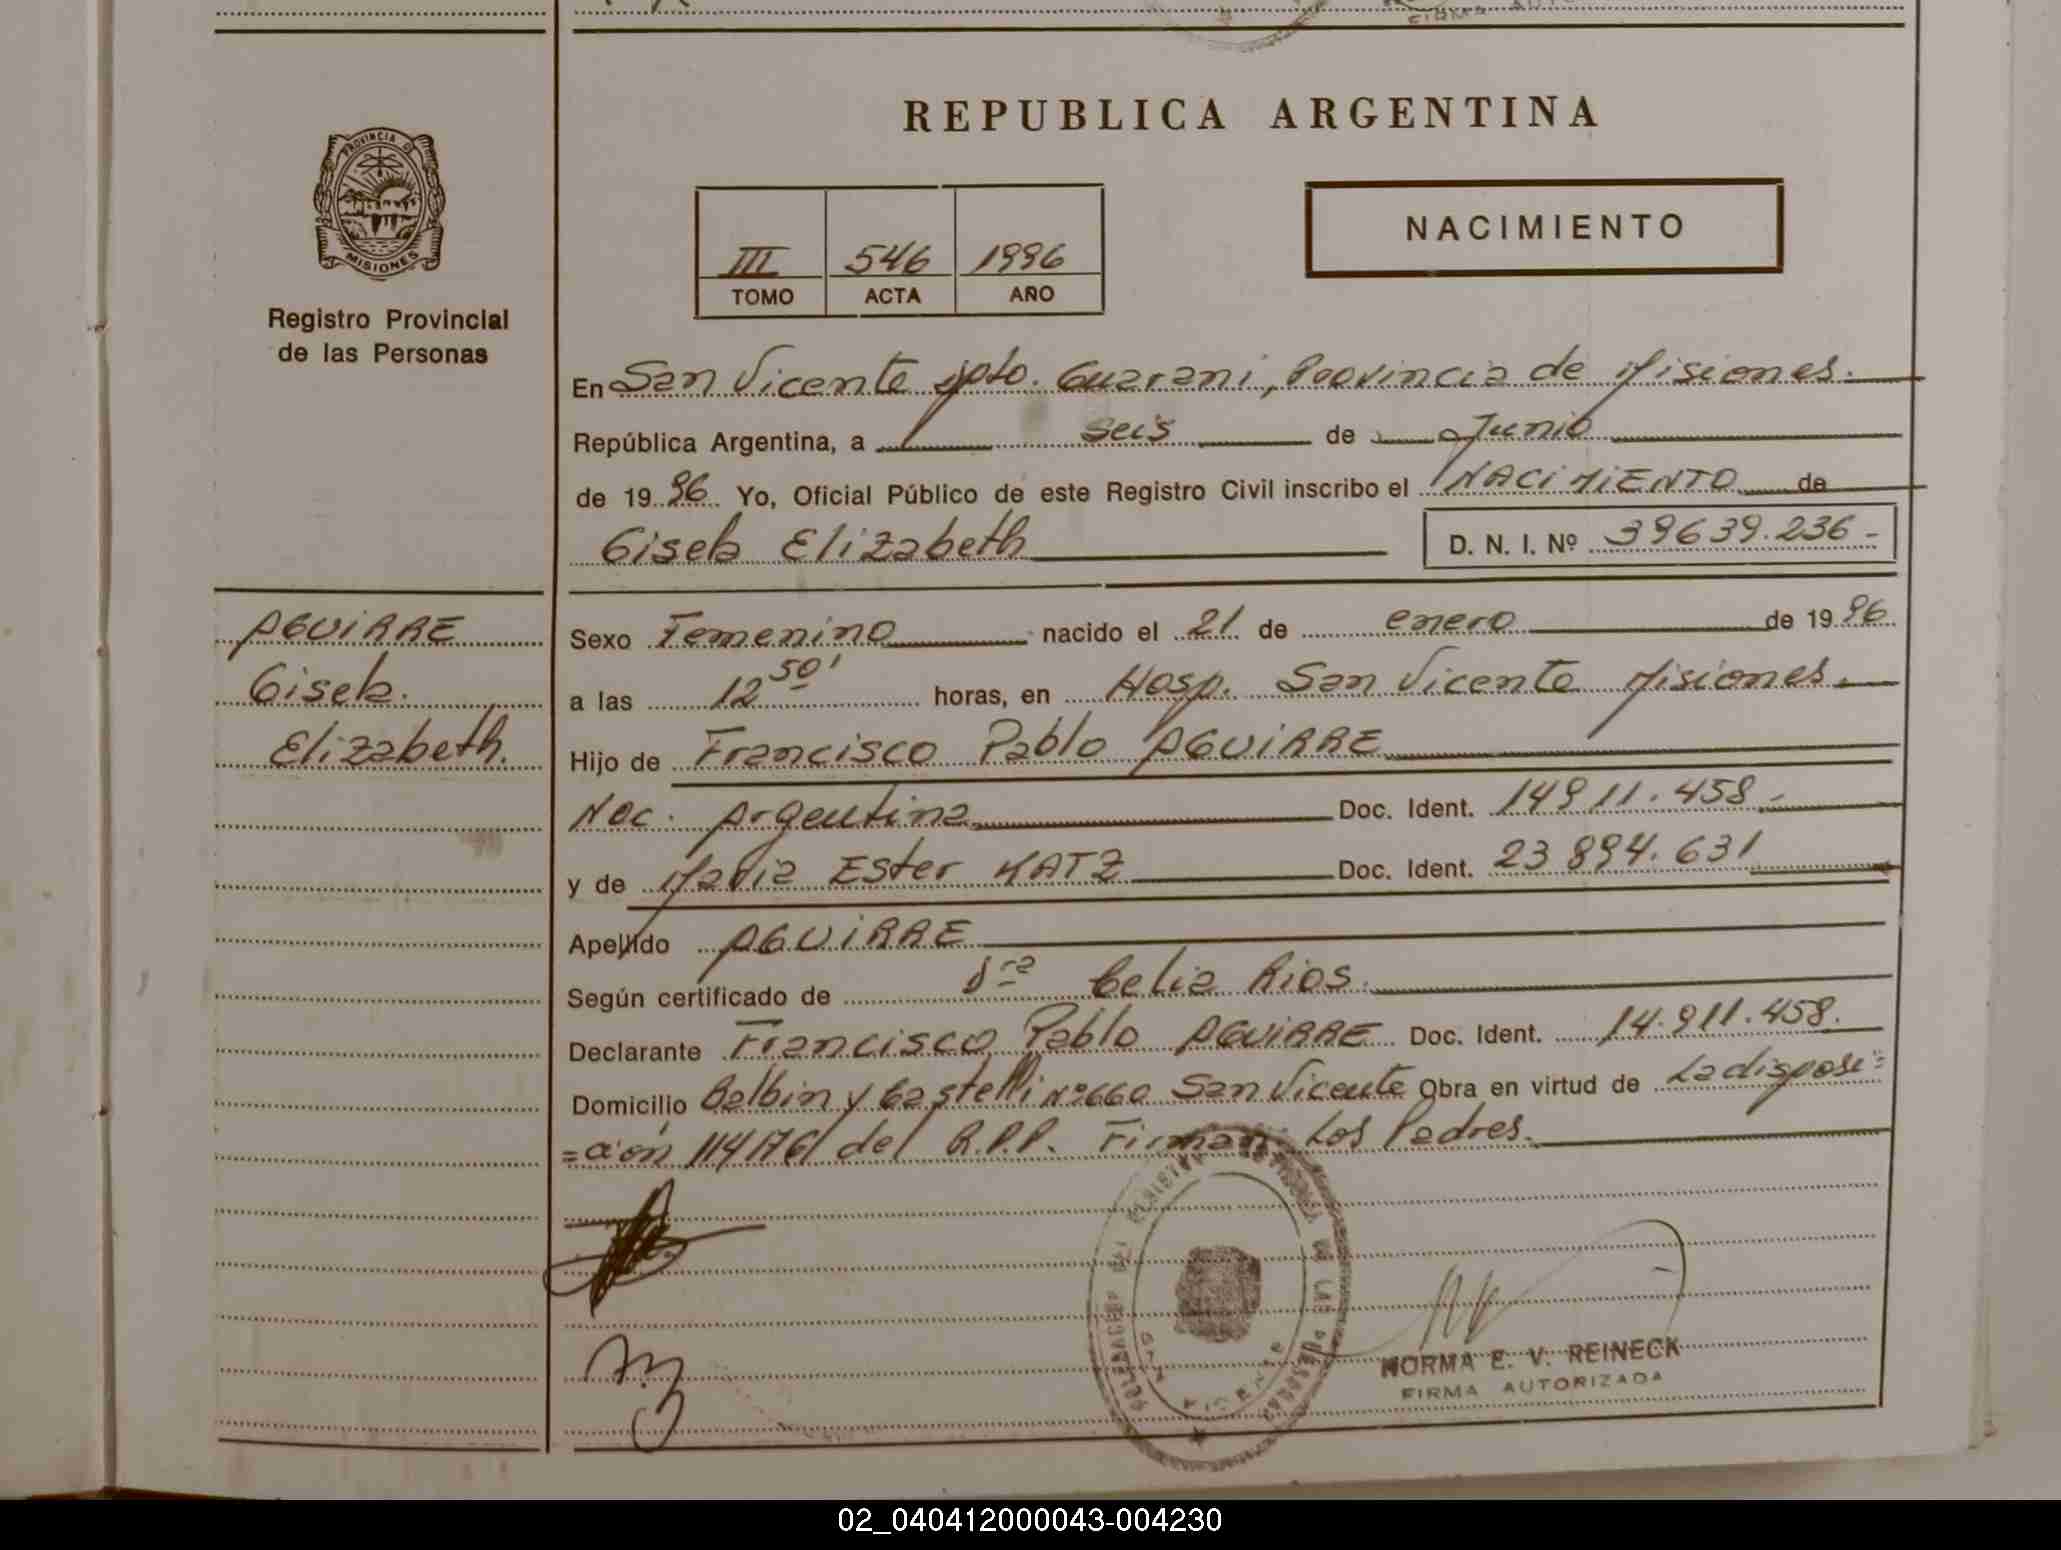 REPUBLICA ARGENTINA
PROVINCIA DE
MISIONES
Registro Provincial
de las Personas
III 546 1996
TOMO ACTA AÑO
NACIMIENTO
En San Vicente Dpto. Guarani, Provincia de Misiones.
República Argentina, a seis de Junio
de 1996 Yo, Oficial Público de este Registro Civil inscribo el NACIMIENTO de
Gisela Elizabeth D. N. I. Nº 39639.236-
AGUIRRE
Gisela.
Elizabeth.
Sexo Femenino nacido el 21 de enero de 1996
a las 12 50' horas, en Hosp. San Vicente Misiones.
Hijo de Francisco Pablo AGUIRRE
Nac. Argentina Doc. Ident. 14911.458.-
y de Maria Ester KATZ Doc. Ident. 23894.631
Apellido AGUIRRE
Según certificado de Dra Celia Rios.
Declarante Francisco Pablo AGUIRRE Doc. Ident. 14.911.458.
Domicilio Balbin y Castelli Nº660 San Vicente Obra en virtud de La disposi=
=ción 114/76/ del R.P.P. Firman: Los Padres.
NORMA E. V. REINECK
FIRMA AUTORIZADA
02_040412000043-004230